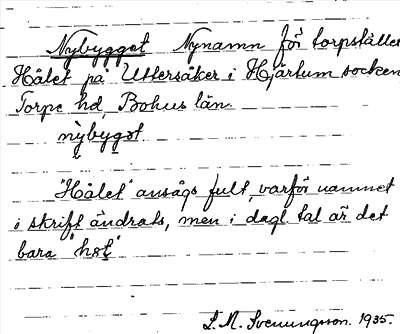 Nybygget Nynamn för torpstället
Hålet på Uttersäker i Hjärtum socken
Torpe hd, Bohus län.
nỳbygət
"Hålet" ansågs fult, varför namnet
i skrift ändrats, men i dagl. tal är det
bara "
S. M. Svenungsson. 1935.